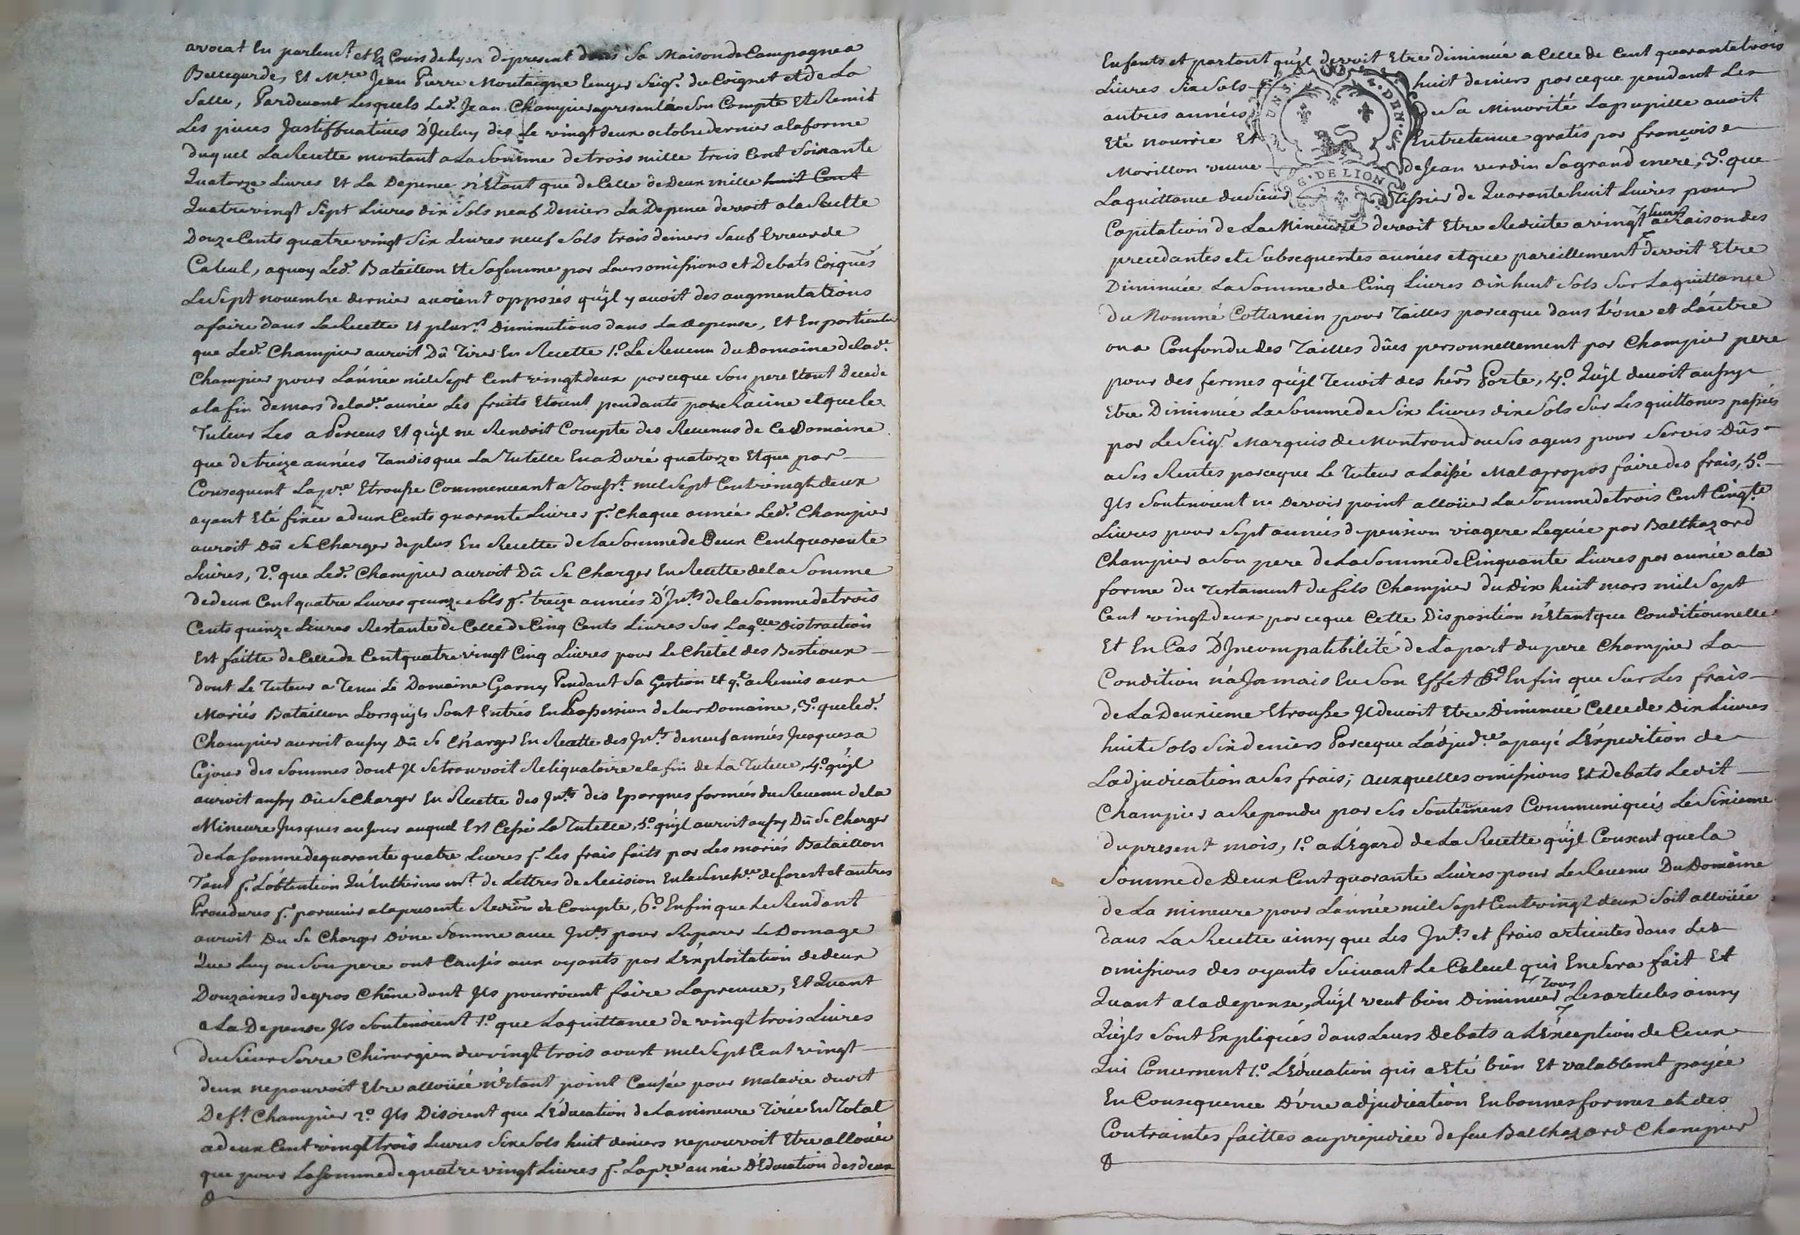 avocat En parlem.t et Es Cours de Lyon dapresent dans Sa Maison de Campagne a
Bellegardes Et M.re Jean Pierre Montaigne Ecuyer Seig.r du Poignet et de La
Salle, Pardevant Lesquels Led.t Jean Champier apresenté Son Compte Et Remit
Les pieces Justifficatives D'Iceluy dès Le vingt deux octobre dernier alaforme
duquel La Recette montant a La Somme de trois mille trois Cent Soixante
Quatorze Livres Et La Depence n'Etant que de Celle de Deux mille huit Cent
Quatrevingt Sept Livres dix Sols neuf Deniers La Depence devoit a la Recette
Douze Cents quatre vingt Six Livres neuf Sols trois deniers Sauf Erreur de
Calcul, aquoy Led.t Bataillon Et Sa femme par Leurs omissions et Debats
Le Sept novembre dernier avoient opposés qu'jl y avoit des augmentations
a faire dans La Recette Et plus.rs Diminutions dans La depense, Et En particulier
que Led.t Champier auroit Dû Tirer En Recette 1.o Le Revenu du Domaine de lad.e
Champier pour L'année mil Sept Cent vingt deux parceque Son pere Etant Decedé
a la fin de mars de lad.e année Les fruits Etoient pendants par Racine et que le
Tuteur Les a perceus Et qu'jl ne Rendoit Compte des Revenus de Ce Domaine
que de treize années Tandis que La Tutelle En a Duré quatorze Et que par
Consequent La p.re Etrousse Commencant a Touss.t mil Sept Cent vingt deux
ayant Eté fixée a deux Cents quarante Livres p.r Chaque année Led.t Champier
auroit Dû Se Charger de plus En Recette de La Somme de Deux Cent quarante
Livres, 2.o que Led.t Champier auroit Dû Se Charger En Recette de la Somme
De deux Cent quatre Livres quinze Sols p.r treize années D'Jnt.ts de la Somme de trois
Cents quinze Livres Restante de Celle de Cinq Cents Livres Sur Laq.lle Distraction
Est faitte de Celle de Cent quatre vingt Cinq Livres pour Le Chétel des Bestiaux
dont Le Tuteur a Tenu Le Domaine Garny Pendant Sa Gestion Et q.l a Remis aux
Mariés Bataillon Lorsqu'jls Sont Entrés En Possession de leur Domaine, 3.o que led.t
Champier auroit aussy Dû Se Charger En Recette des Jnt.ts de neuf années Jusques a
Cejour des Sommes dont Jl Se trouvoit Reliquataire a la fin de La Tutelle, 4.o qu'jl
auroit aussy Dû Se Charger En Recette des Jnt.ts des Epargnes formées du Revenu de la
Mineure Jusques au Jour auquel Est Cessé La Tutelle, 5.o qu'jl auroit aussy Dû Se Charger
de La Somme de quarante quatre Livres p.r Les frais faits par Les mariés Bataillon
Tant p.r L'obtention Qu'Entherinem.t de Lettres de Recision En la Senech.ee de forest et autres
Procedures p.r parvenir a la presente de Compte, 6.o Enfin que Le Rendant
auroit Du Se Charger D'une Somme avec Jnt.ts pour Reparer Le Domage
Que Luy ou Son pere ont Causés aux oyants par L'Exploitation de deux
Douzaines de gros Chêne dont Jls pourroient faire La preuve, Et Quant
a La Depense Jls Soutenoient 1.o que La quittance de vingt trois Livres
du Sieur Serre Chirurgien du vingt trois aoust mil Sept Cent vingt
deux ne pouvoit Etre allouée n'Etant point Causée pour maladie dudit
Deff.t Champier 2.o Jls Disoient que L'Education de La mineure Tirée En Total
a deux Cent vingt trois Livres Six Sols huit deniers ne pouvoit Etre allouée
que pour La Somme de quatre vingt Livres p.r La p.re année D'Education des deux
Enfants et partant qu'jl devoit Etre diminué a Celle de Cent quarante trois
Livres Six Sols huit deniers parceque pendant Les
autres années de Sa Minorité La pupille avoit
Eté nourrie Et Entretenue gratis par françoise
Morillon veuve de Jean verdin Sa grand mere, 3.o que
La quittance du Sieur Tissier de Quarante huit Livres pour
Capitation de La Mineure devoit Etre Reduite a vingt 7 Livres a Raison des
precedantes et Subsequentes années et que pareillement devoit Etre
Diminuée La Somme de Cinq Livres dix huit Sols Sur La quittance
du Nommé Cottancin pour Tailles parceque dans L'une et L'autre
on a Confondu des Tailles dûes personnellement par Champier pere
pour des fermes qu'jl Tenoit des hérs Porte, 4.o Qu'jl devoit aussy
Etre Diminué La Somme de Six Livres dix Sols Sur Les quittances passées
par Le Seig.r Marquis de Montrond ou Ses agens pour Servis Dûs
a Ses Rentes parceque Le Tuteur a Laissé Mal apropos faire des frais, 5.o
Jls Soutenoient ne Devoir point allouër La Somme de trois Cent Cinq.te
Livres pour Sept années de pension viagere Leguée par Balthazard
Champier a Son pere de La Somme de Cinquante Livres par année a la
forme du Testament du fils Champier du dix huit mars mil Sept
Cent vingt deux parceque Cette Disposition n'Etant que Conditionnelle
Et En Cas D'Jncompatibilité de La part du pere Champier La
Condition n'a Jamais Eu Son Effet 6.o Enfin que Sur Les frais
de La Deuxieme Etrousse Jl devoit Etre Diminué Celle de Dix Livres
huit Sols Six deniers Parceque L'adjud.re a payé L'Expedition de
L'adjudication a Ses frais; auxquelles omissions Et Debats Ledit
Champier a Repondu par Ses Soutenemens Communiqués Le Sixieme
du present mois, 1.o a L'Egard de La Recette qu'jl Consent que la
Somme de Deux Cent quarante Livres pour Le Revenu Du Domaine
de La mineure pour L'année mil Sept Cent vingt deux Soit allouée
dans La Recette ainsy que Les Jnt.ts et frais articulés dans Les
omissions des oyants Suivant Le Calcul qui En Sera fait Et
Quant a la depense, Qu'jl veut bien Diminuer Tous Les articles ainsy
Qu'jls Sont Expliqués dans Leurs Debats a L'Exception de Ceux
Qui Concernent 1.o L'Education qui a Eté bien Et valablemt payée
En Consequence D'une adjudication En bonnes formes et des
Contraintes faittes au prejudice de feu Balthazard Champier